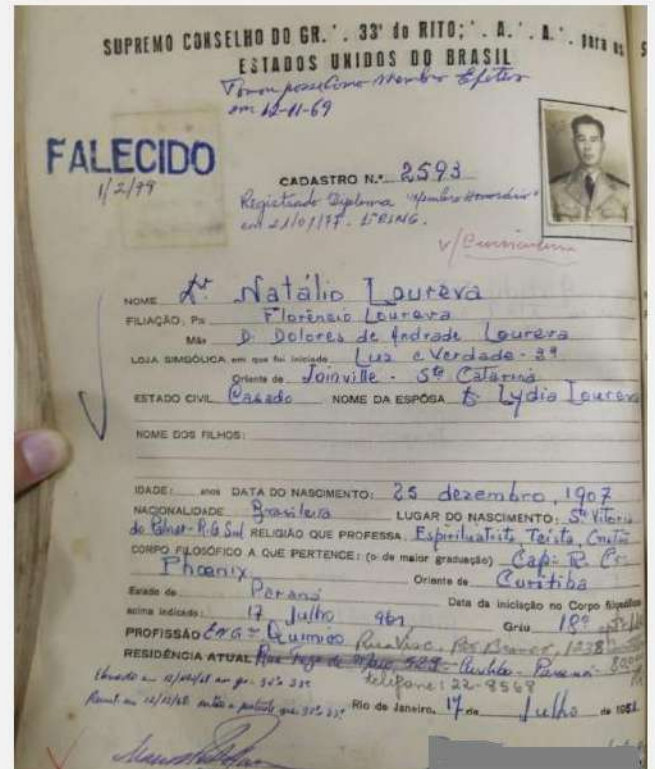 SUPREMO CONSELHO DO GR.'. 33º do RITO;'. A.'. A.'. para os
ESTADOS UNIDOS DO BRASIL
Tomou posse como Membro Efetivo
em 12-11-69
FALECIDO
1/2/79
CADASTRO N.º 2593
Registrado Diploma "Membro Honorário"
em 21/01/77.
NOME Dr. Natálio Loureva
FILIAÇÃO: Pai Florêncio Loureva
Mãe D. Dolores de Andrade Loureva
LOJA SIMBÓLICA em que foi iniciado Luz e Verdade - 3ª
Oriente de Joinville - Stª Catarina
ESTADO CIVIL Casado NOME DA ESPÔSA Lydia Loureva
NOME DOS FILHOS:
IDADE: anos DATA DO NASCIMENTO: 25 dezembro, 1907
NACIONALIDADE Brasileira LUGAR DO NASCIMENTO: Stª Vitoria
do Palmar - R.G. Sul RELIGIÃO QUE PROFESSA: Espiritualista, Teista, Cristã
CORPO FILOSÓFICO A QUE PERTENCE: (o de maior graduação) Cap: R. Cr.
Phoenix Oriente de Curitiba
Estado de Paraná Data da iniciação no Corpo filosófico
acima indicado: 17 Julho 961 Gráu 18º
PROFISSÃO Engº Químico Rua Visc. Rio Branco, 1338
RESIDÊNCIA ATUAL Rua Treze de Maio 529 - Curitiba - Paraná - 80000
telefone: 22-8568
Rio de Janeiro, 17 de Julho de 1961